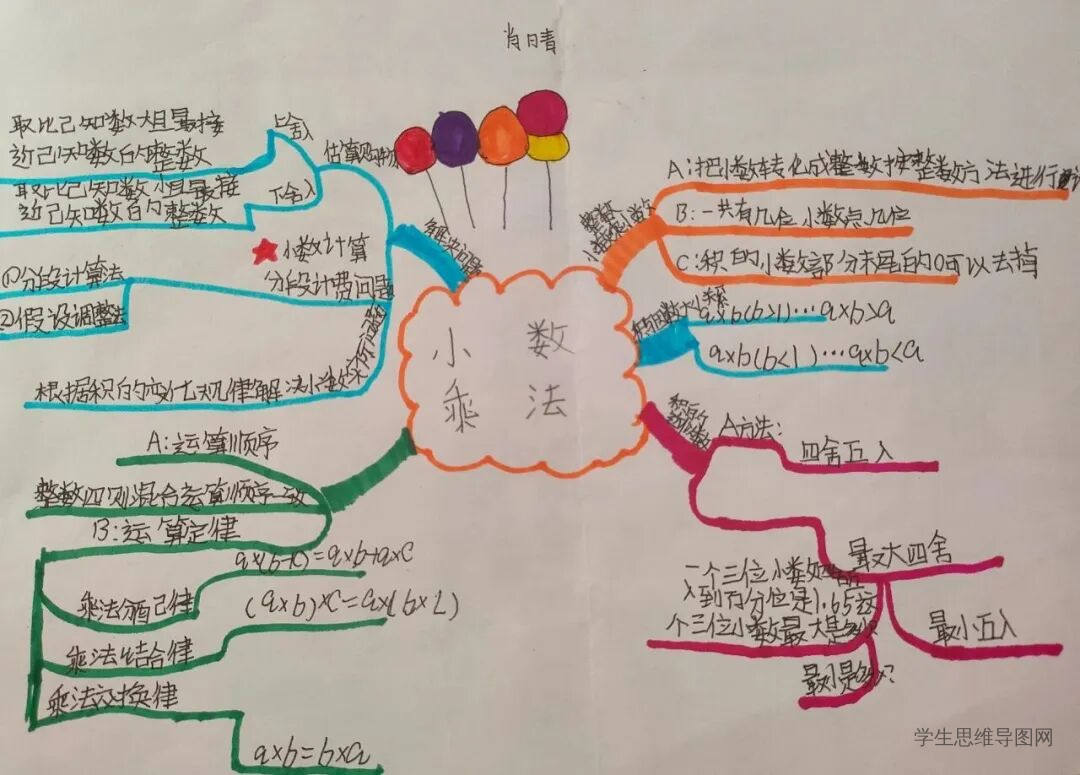 肖日青
小数
乘法
估算购物
上舍入
取比己知数大且最接
近己知数的整数
下舍入
取比己知数小且最接
近己知数的整数
解决问题
★小数计算
分段计费问题
①分段计算法
②假设调整法
根据积的变化规律解决小数
A:把小数转化成整数按整数方法进行
B:一共有几位小数点几位
C:积的小数部分末尾的0可以去掉
a×b(b>1)…a×b>a
a×b(b<1)…a×b<a
A方法:
四舍五入
最大四舍
最小五入
一个三位小数四舍五
入到百分位是1.65这
个三位小数最大是多少
最小是多少?
A:运算顺序
整数四则混合运算顺序一致
B:运算定律
乘法分配律
a×(b+c)=a×b+a×c
乘法结合律
(a×b)×c=a×(b×c)
乘法交换律
a×b=b×a
学生思维导图网